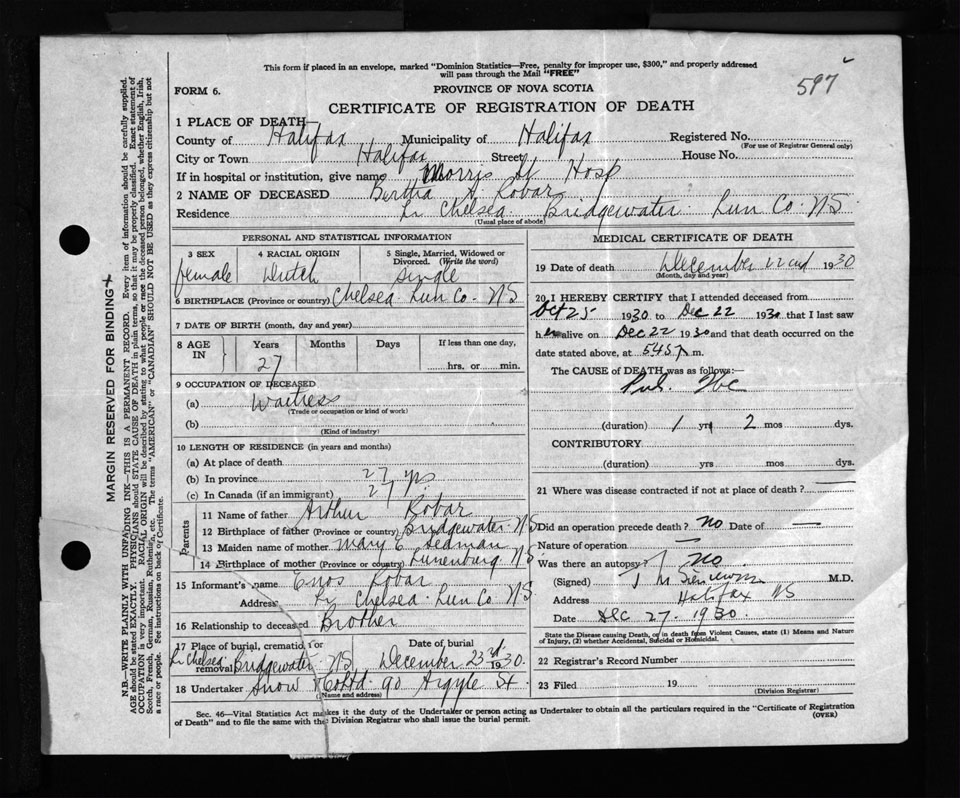 This form if placed in an envelope, marked "Dominion Statistics—Free, penalty for improper use, $300," and properly addressed
will pass through the Mail "FREE"
597
FORM 6.
PROVINCE OF NOVA SCOTIA
CERTIFICATE OF REGISTRATION OF DEATH
1 PLACE OF DEATH
County of Halifax Municipality of Halifax Registered No.
(For use of Registrar General only)
City or Town Halifax Street House No.
If in hospital or institution, give name Morris St Hosp
2 NAME OF DECEASED Bertha A. Robar
Residence Lr Chelsea Bridgewater Lun Co. NS.
(Usual place of abode)
PERSONAL AND STATISTICAL INFORMATION
3 SEX 4 RACIAL ORIGIN 5 Single, Married, Widowed or
Divorced. (Write the word)
female Dutch Single
6 BIRTHPLACE (Province or country) Chelsea Lun Co. NS
7 DATE OF BIRTH (month, day and year)
8 AGE IN Years Months Days If less than one day,
27 hrs. or min.
9 OCCUPATION OF DECEASED
(a) Waitress
(Trade or occupation or kind of work)
(b)
(Kind of industry)
10 LENGTH OF RESIDENCE (in years and months)
(a) At place of death
(b) In province 27 yrs.
(c) In Canada (if an immigrant) 27 yrs.
Parents
11 Name of father Arthur Robar
12 Birthplace of father (Province or country) Bridgewater NS
13 Maiden name of mother Mary E Hedman
14 Birthplace of mother (Province or country) Lunenburg NS
15 Informant's name Enos Robar
Address Lr Chelsea Lun Co NS
16 Relationship to deceased Brother
17 Place of burial, cremation or Date of burial
removal Lr Chelsea Bridgewater NS. December 23rd 1930.
18 Undertaker Snow & Co Ltd 90 Argyle St
(Name and address)
MEDICAL CERTIFICATE OF DEATH
19 Date of death December 22nd 1930
(Month, day and year)
20 I HEREBY CERTIFY that I attended deceased from
Oct 25 1930 to Dec 22 1930 that I last saw
her alive on Dec 22 1930 and that death occurred on
date stated above, at 545 P m.
The CAUSE OF DEATH was as follows:—
Pul. Tbc
(duration) 1 yrs 2 mos dys.
CONTRIBUTORY
(duration) yrs mos dys.
21 Where was disease contracted if not at place of death?
Did an operation precede death? no Date of —
Nature of operation —
Was there an autopsy? no.
(Signed) M.D.
Address Halifax NS
Date Dec 27. 1930.
State the Disease causing Death, or in death from Violent Causes, state (1) Means and Nature
of Injury, (2) whether Accidental, Suicidal or Homicidal.
22 Registrar's Record Number
23 Filed 19
(Division Registrar)
Sec. 46—Vital Statistics Act makes it the duty of the Undertaker or person acting as Undertaker to obtain all the particulars required in the "Certificate of Registration
of Death" and to file the same with the Division Registrar who shall issue the burial permit.
(OVER)
MARGIN RESERVED FOR BINDING
N.B.—WRITE PLAINLY WITH UNFADING INK—THIS IS A PERMANENT RECORD. Every item of information should be carefully supplied.
AGE should be stated EXACTLY. PHYSICIANS should STATE CAUSE OF DEATH in plain terms, so that it may be properly classified. Exact statement of
OCCUPATION is very important. RACIAL ORIGIN will be described by stating to what people or race the deceased person belonged, whether English, Irish,
Scotch, French, German, Russian, Ruthenian, etc. The terms "AMERICAN" or "CANADIAN" SHOULD NOT BE USED as they express citizenship but not
a race or people. See instructions on back of Certificate.